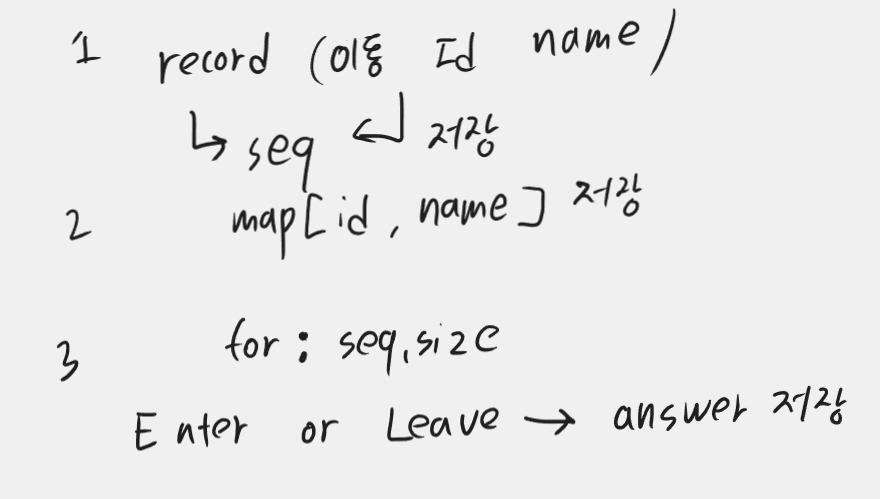 1 record (이동 Id name)
↳ seq ↲ 저장
2 map[id, name] 저장
3 for : seq.size
Enter or Leave → answer 저장